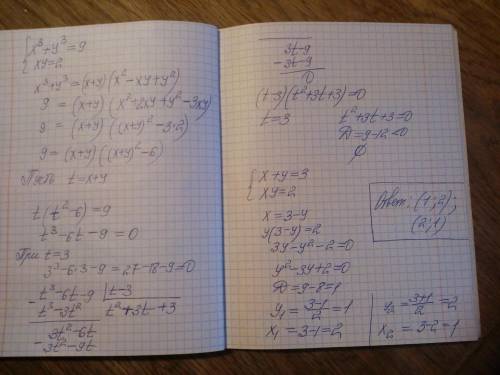 { x³+y³=9
xy=2
x³+y³=(x+y)(x²-xy+y²)
9 = (x+y)(x²+2xy+y²-3xy)
9 = (x+y)((x+y)²-3·2)
9=(x+y)((x+y)²-6)
Пусть t=x+y
t(t²-6)=9
t³-6t-9=0
При t=3
3³-6·3-9=27-18-9=0
- t³-6t-9 | t-3
t³-3t² t²+3t+3
3t²-6t
- 3t²-9t
3t-9
- 3t-9
0
(t-3)(t²+3t+3)=0
t=3 t²+3t+3=0
D=9-12<0
∅
{ x+y=3
xy=2
x=3-y
y(3-y)=2
3y-y²-2=0
y²-3y+2=0
D=9-8=1
y₁=(3-1)/2=1
x₁=3-1=2
y₂=(3+1)/2=2
x₂=3-2=1
Ответ: (1;2);
(2;1)